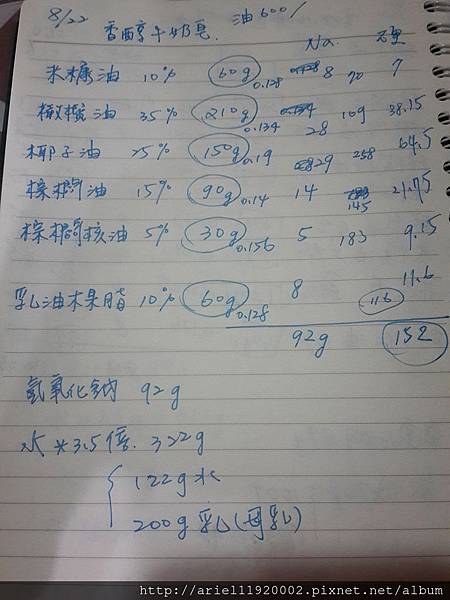 8/22 香醇牛奶皂. 油600/
Na. 硬
米糠油 10% 60g 0.128 8 70 7
橄欖油 35% 210g 0.134 28 109 38.15
椰子油 25% 150g 0.19 29 258 64.5
棕櫚油 15% 90g 0.14 14 145 21.75
棕櫚核油 5% 30g 0.156 5 183 9.15
乳油木果脂 10% 60g 0.128 8 116 11.6
92g 152
氫氧化鈉 92g
水 x 3.5倍. 322g
122g水
200g 乳(母乳)
http://ariel11920002.pixnet.net/album